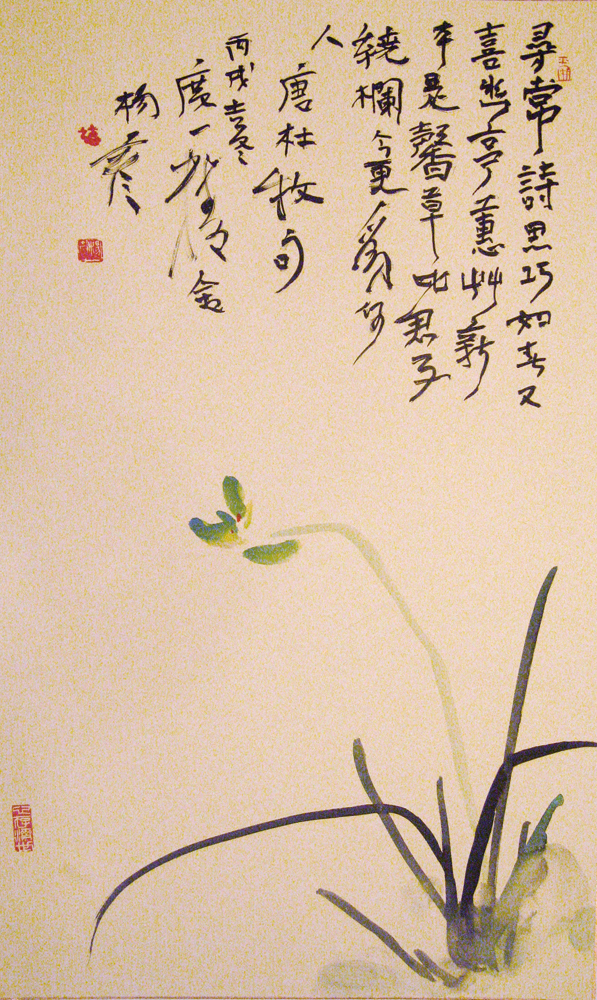 尋常詩思巧如春又
喜幽亭蕙艸新
本是馨草比君子
繞欄今更為何
人
唐杜牧句
丙戌冬
廣一
楊彦